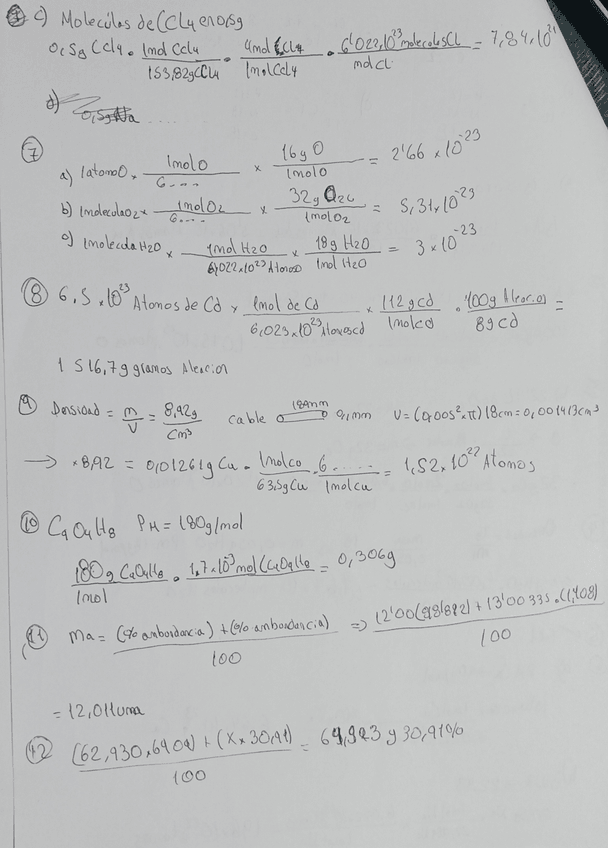 c) Moleculas de CCl4 en 0,5g
0,5g CCl4 · 1mol CCl4 / 153,82g CCl4 · 4mol CCl4 / 1mol CCl4 · 6'022,10^23 moleculas Cl / mol Cl = 7,84.10^21
d) 0,5g Na ......
7
a) 1atomo O × 1mol O / 6.... × 16g O / 1mol O = 2'66 × 10^-23
b) 1molecula O2 × 1mol O2 / 6.... × 32g O2 / 1mol O2 = 5,31 × 10^-23
c) 1molecula H2O × 1mol H2O / 6,022×10^23 Atomos × 18g H2O / 1mol H2O = 3 × 10^-23
8 6,5 × 10^23 Atomos de Cd × 1mol de Cd / 6,023×10^23 Atomos cd × 112g cd / 1mol cd · 100g Aleacion / 8g cd =
1516,7g gramos Aleacion
9 Densidad = m / V = 8,92g / cm³ cable 184mm 0,1mm V = (0,005² × π) 18cm = 0,001413cm³
→ ×8,92 = 0,01261g Cu · 1mol co / 63,5g Cu · 6...... / 1mol cu = 1,52 × 10^22 Atomos
10 C9O4H8 PM = 180g/mol
180g C9O4H8 / 1mol · 1,7×10^-3 mol C9O4H8 = 0,306g
11 Ma = (% ambondancia) + (% ambondancia) / 100 ⇒ 12'00(98'892) + 13'00335·(1,108) / 100
= 12,011uma
12 (62,930,6909) + (X × 30,91) / 100 = 64,923 y 30,91%